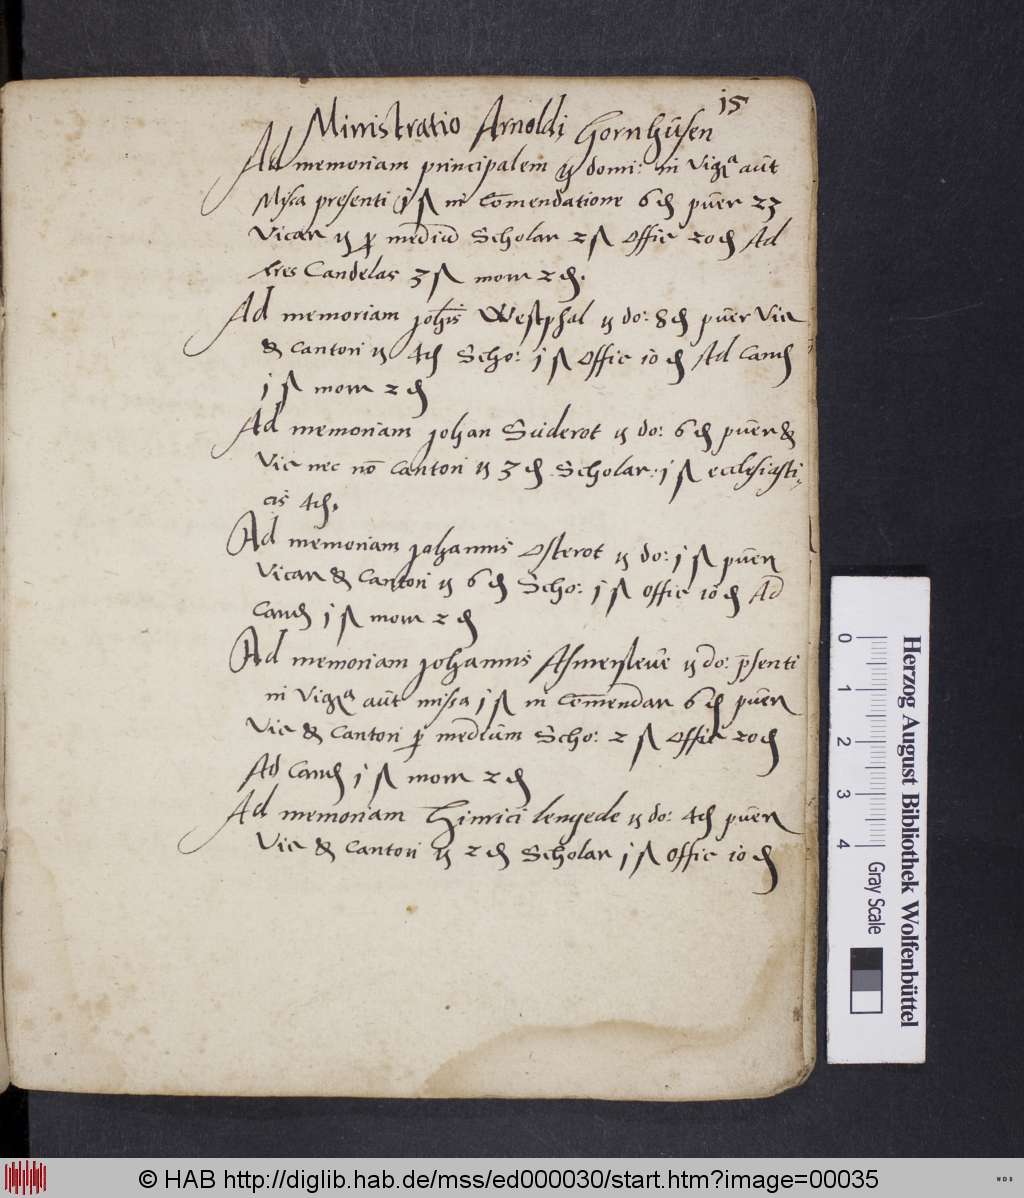 15
Ministratio Arnoldi Hornhüsen
Ad memoriam principalem domi: in Vigᵃ aūt
Missa presenti j ß in Comendatione 6 ₰ puēr 23
Vicar mediū Scholar 2 ß Offic 20 ₰ Ad
tres Candelas 3 ß mom 2 ₰.
Ad memoriam johīs Westphal do: 8 ₰ puēr Vic
& Cantori 4 ₰ Scho: j ß Offic 10 ₰ Ad Cand
j ß mom 2 ₰
Ad memoriam johan Suderot do: 6 ₰ puēr &
Vic nec nō Cantori 3 ₰ Scholar: j ß ecclesiasti
cis 4 ₰.
Ad memoriam johannis Osterot do: j ß puēr
Vicar & Cantori 6 ₰ Scho: j ß Offic 10 ₰ Ad
Cand j ß mom 2 ₰
Ad memoriam johannis Asmerslevē do: p̄senti
in Vigᵃ aūt missa j ß in Comendar 6 ₰ puēr
Vic & Cantori mediūm Scho: 2 ß Offic 20 ₰
Ad Cand j ß mom 2 ₰
Ad memoriam Hinrici lengede do: 4 ₰ puēr
Vic & Cantori 2 ₰ Scholar j ß Offic 10 ₰
Herzog August Bibliothek Wolfenbüttel
0 1 2 3 4 Gray Scale
© HAB http://diglib.hab.de/mss/ed000030/start.htm?image=00035